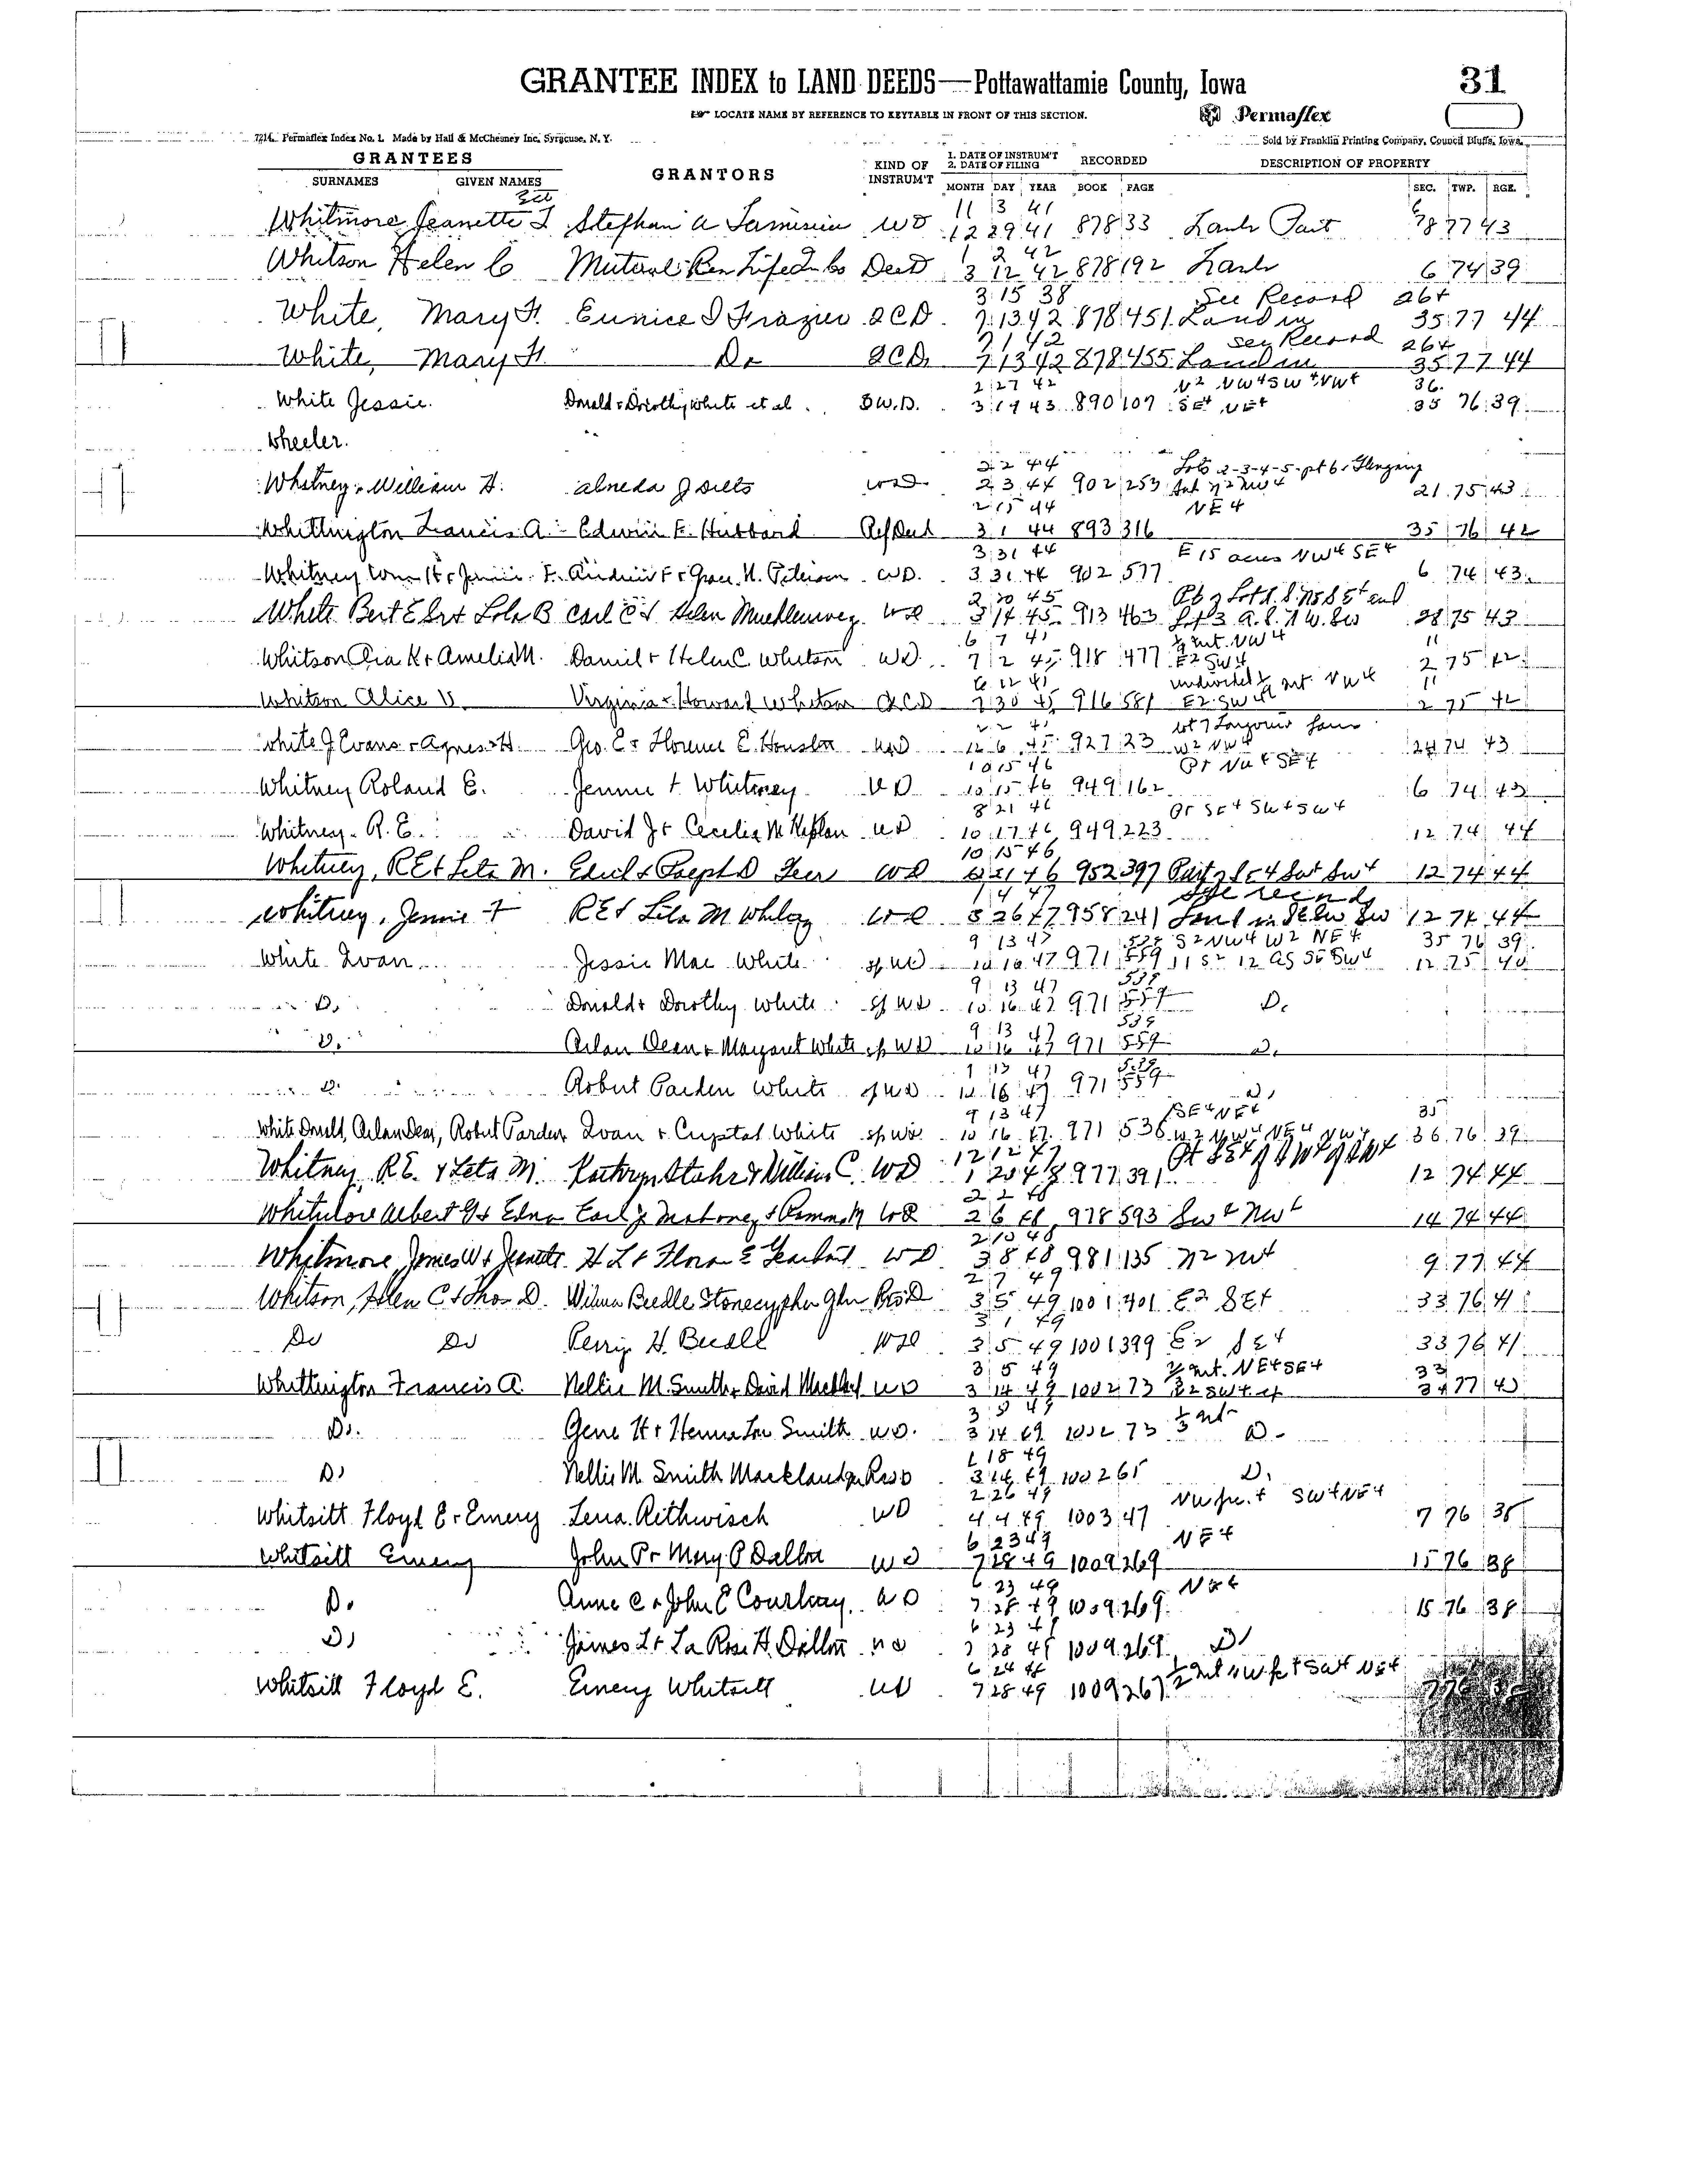 GRANTEE INDEX to LAND DEEDS—Pottawattamie County, Iowa 31
LOCATE NAME BY REFERENCE TO KEYTABLE IN FRONT OF THIS SECTION. Permaflex
7214 Permaflex Index No. 1. Made by Hall & McChesney Inc. Syracuse, N. Y. Sold by Franklin Printing Company, Council Bluffs, Iowa.
GRANTEES GRANTORS KIND OF INSTRUM'T 1. DATE OF INSTRUM'T 2. DATE OF FILING RECORDED DESCRIPTION OF PROPERTY
SURNAMES GIVEN NAMES MONTH DAY YEAR BOOK PAGE SEC. TWP. RGE.
11 3 41
Whitmore Jeanette I Stephan A WD 12 29 41 878 33 Part 77 43
1 2 42
Whitson Helen C Mutual Ben Life In Co Deed 3 12 42 878 192 6 74 39
3 15 38 See Record 26+
White, Mary F. Eunice I Frazier QCD 7 13 42 878 451 Land in 35 77 44
7 1 42 see Record 26+
White, Mary F. Do QCD 7 13 42 878 455 Land in 35 77 44
2 27 42 N2 NW4 SW4 NW4 36
White Jessie Donald & Dorothy White et al 3 19 43 890 107 SE4 NE4 35 76 39
Wheeler.
2 2 44 Lots 2-3-4-5-pt 6
Whitney William H. Almeda J WD 2 3 44 902 253 21 75 43
2 15 44 NE4
Whittington Francis A. Edwin F. Hubbard Ref Deed 3 1 44 893 316 35 76 42
3 31 44 E 15 acres NW4 SE4
Whitney Wm H & Jennie F. Andrew F & Grace N. Peterson WD. 3 31 44 902 577 6 74 43
2 20 45
White Bert E Sr & Lola B Carl C & Helen WD 3 14 45 913 463 28 75 43
6 7 45 int. NW4 11
Whitson Ira K & Amelia M. Daniel & Helen C. Whitson WD 7 2 45 918 477 E2 SW4 2 75 42
6 12 45 undivided int. NW4 11
Whitson Alice V. Virginia & Howard Whitson QCD 7 30 45 916 581 E2 SW4 2 75 42
lot 7
White J Evans & Agnes H. Geo. E & Florence E. Houston WD 12 6 45 927 23 W2 NW4 74 43
10 15 46 Pt NW4 SE4
Whitney Roland E. Jennie F Whitney WD 10 15 46 949 162 6 74 43
8 21 46 Pt SE4 SW4 SW4
Whitney R. E. David J & Cecelia M Kaplan WD 10 17 46 949 223 12 74 44
10 15 46
Whitney, RE & Leta M. WD 952 397 Part of SE4 SW4 SW4 12 74 44
1 4 47 See record
Whitney, Jennie F RE & Leta M Whitney WD 3 26 47 958 241 Land in SE SW SW 12 74 44
9 13 47 539 S2 NW4 W2 NE4 35 76 39
White Ivan Jessie Mae White WD 10 16 47 971 559 12 75 40
9 13 47 539
D. Donald & Dorothy White WD 10 16 47 971 559 D.
9 13 47 539
D. Arlan Dean & Margaret White WD 10 16 47 971 559 D.
9 13 47 539
D. Robert Parden White WD 10 16 47 971 559 D.
9 13 47 SE4 NE4 35
White Donald, Arlan Dean, Robert Parden Ivan & Crystal White WD 10 16 47 971 536 W2 NW4 NE4 NW4 36 76 39
12 12 47 Pt SE4 of SW4 of SW4
Whitney, R.E. & Leta M. Kathryn Stahr & William C. WD 1 20 48 977 391 12 74 44
2 2 48
Albert G & Edna Earl J Mahoney & WD 2 6 48 978 593 SW4 NW4 14 74 44
2 10 48
Whitmore, James W & Jeanette H L & Flora E WD 3 8 48 981 135 N2 NW4 9 77 44
2 7 49
Whitson, Helen C & Thos D. Wilma Beedle Stonecypher gdn 3 5 49 1001 401 E2 SE4 33 76 41
3 1 49
Do Do Perry H. Beedle WD 3 5 49 1001 399 E2 SE4 33 76 41
3 5 49 int. NE4 SE4 33
Whittington Francis A. Nellie M. Smith & David WD 3 14 49 1002 73 34 77 43
3 5 49 int
D. Gene H & Smith WD. 3 14 49 1002 73 D.
1 18 49
D. Nellie M Smith 3 14 49 1002 65 D.
2 26 49 NW fr. 4 SW4 NE4
Whitsitt Floyd E & Emery Lena Rethwisch WD 4 4 49 1003 47 7 76 38
6 23 49 NE4
Whitsitt Emery John P & Mary P Dallon WD 7 28 49 1009 269 15 76 38
6 23 49 NE4
D. Anne C & John E Courtney WD 7 28 49 1009 269 15 76 38
6 23 49
D. James L & La Rose H. Dillon WD 7 28 49 1009 269 D.
6 24 49 int NW fr 4 SW4 NE4
Whitsitt Floyd E. Emery Whitsitt WD 7 28 49 1009 267